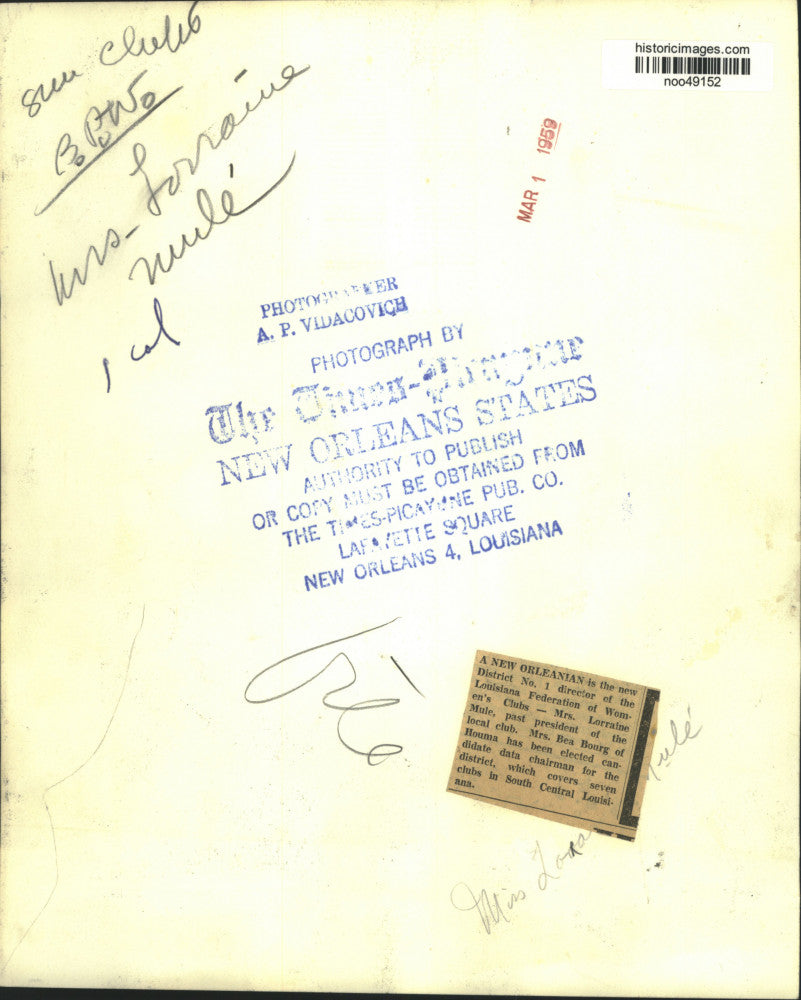 historicimages.com
noo49152
sun clubs
B.P.W.
Mrs. Lorraine
Mulé
1 col
MAR 1 1959
PHOTOGRAPHER
A. P. VIDACOVICH
PHOTOGRAPH BY
The Times-Picayune
NEW ORLEANS STATES
AUTHORITY TO PUBLISH
OR COPY MUST BE OBTAINED FROM
THE TIMES-PICAYUNE PUB. CO.
LAFAYETTE SQUARE
NEW ORLEANS 4, LOUISIANA
A NEW ORLEANIAN is the new
District No. 1 director of the
Louisiana Federation of Wom-
en's Clubs — Mrs. Lorraine
Mule, past president of the
local club. Mrs. Bea Bourg of
Houma has been elected can-
didate data chairman for the
district, which covers seven
clubs in South Central Louisi-
ana.
Miss Lorra Mulé